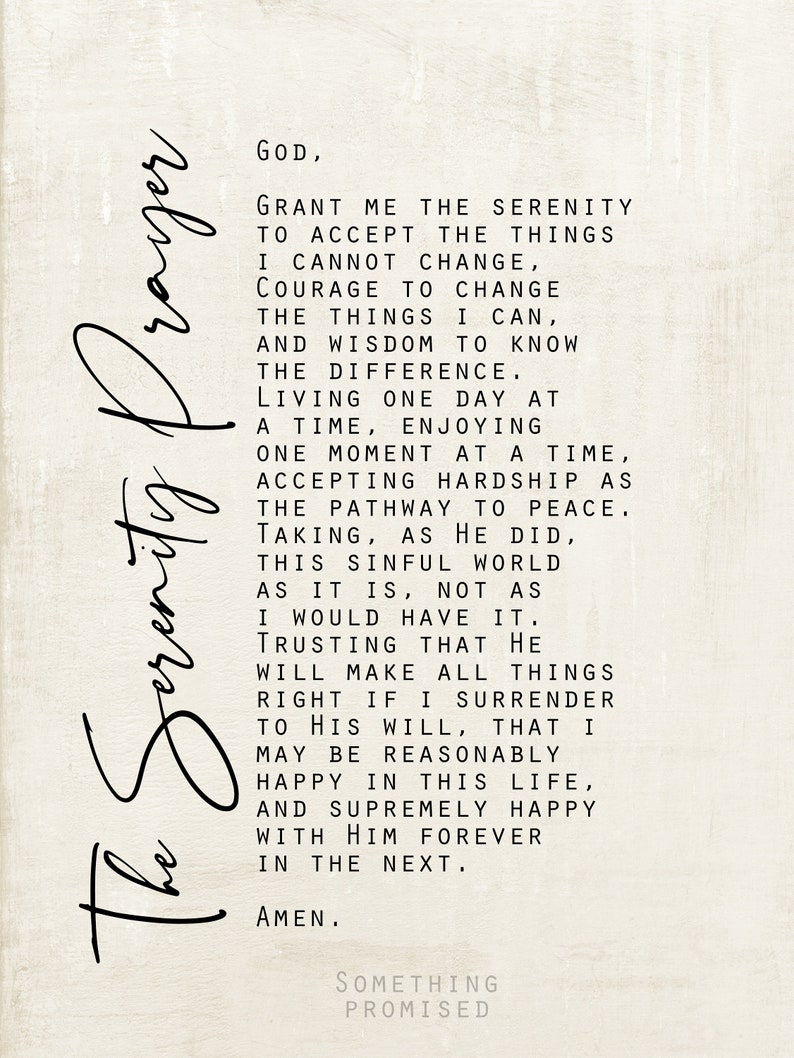 The Serenity Prayer
God,
Grant me the serenity
to accept the things
I cannot change,
Courage to change
the things I can,
and wisdom to know
the difference.
Living one day at
a time, enjoying
one moment at a time,
accepting hardship as
the pathway to peace.
Taking, as He did,
this sinful world
as it is, not as
I would have it.
Trusting that He
will make all things
right if I surrender
to His will, that I
may be reasonably
happy in this life,
and supremely happy
with Him forever
in the next.
Amen.
Something
promised